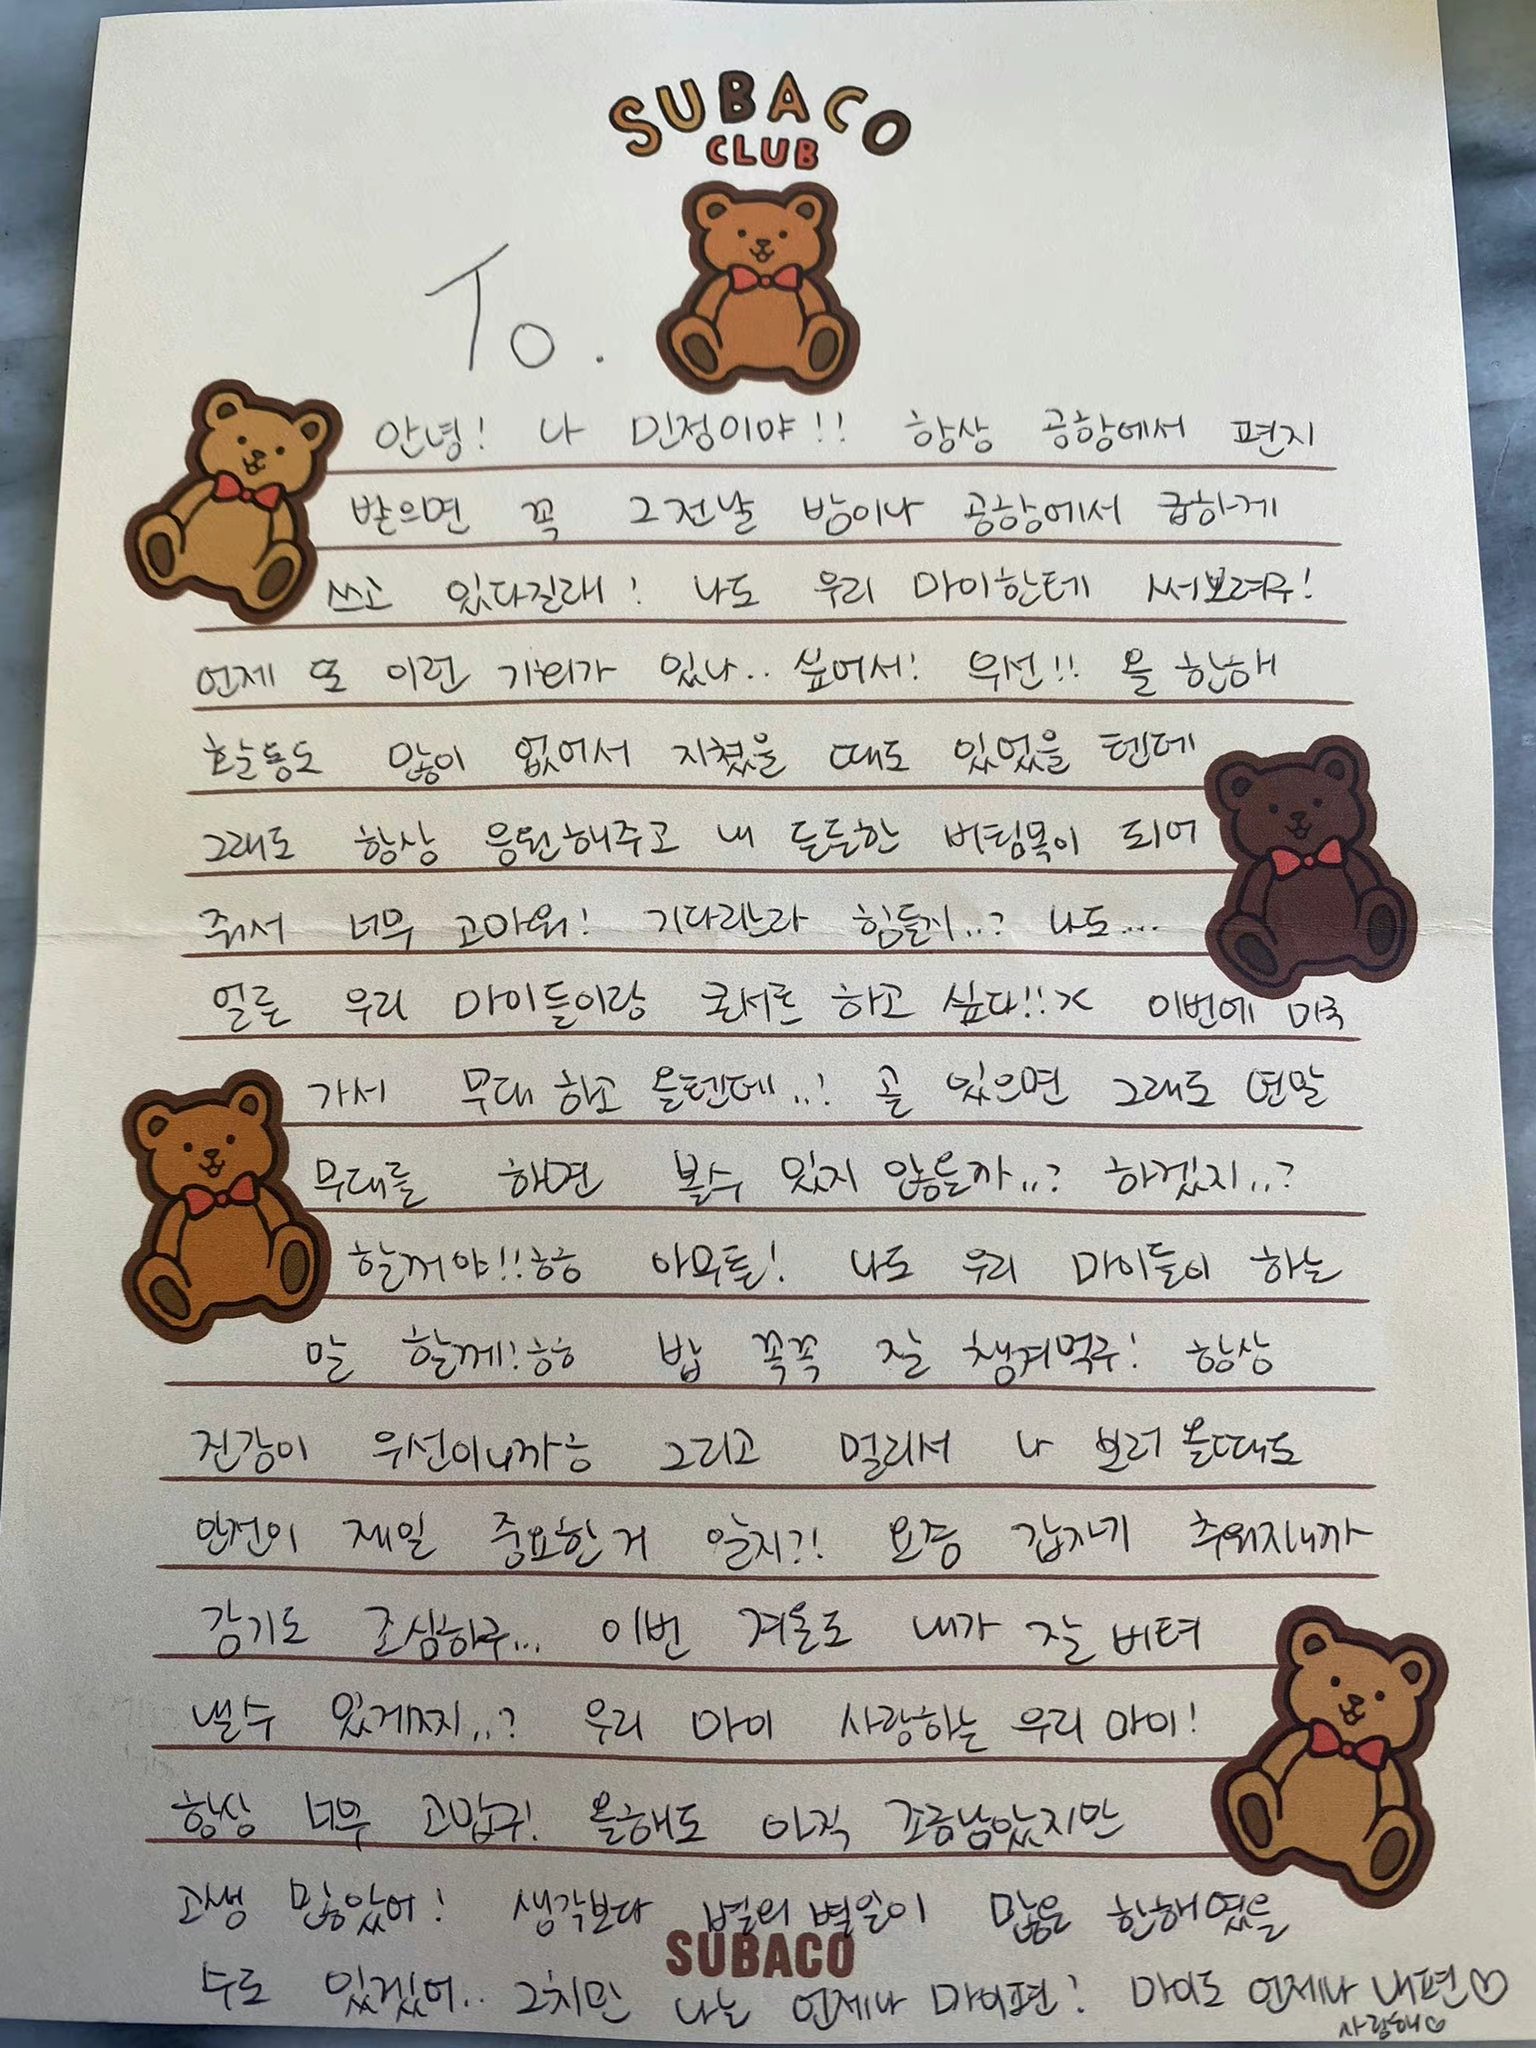 SUBACO
CLUB
To.
안녕! 나 민정이야!! 항상 공항에서 편지
받으면 꼭 그전날 밤이나 공항에서 급하게
쓰고 있다길래! 나도 우리 마이한테 써보려구!
언제 또 이런 기회가 있나.. 싶어서! 우선!! 올 한해
활동도 많이 없어서 지쳤을 때도 있었을 텐데
그래도 항상 응원해주고 내 든든한 버팀목이 되어
줘서 너무 고마워! 기다리느라 힘들지..? 나도...
얼른 우리 마이들이랑 콘서트 하고 싶다!! 이번에 미국
가서 무대 하고 올텐데..! 곧 있으면 그래도 연말
무대를 하면 볼수 있지 않을까..? 하겠지..?
할꺼야!!ㅎㅎ 아무튼! 나도 우리 마이들이 하는
말 할께!ㅎㅎ 밥 꼭꼭 잘 챙겨먹구! 항상
건강이 우선이니까ㅎ 그리고 멀리서 나 보러 올때도
안전이 제일 중요한거 알지?! 요즘 갑자기 추워지니까
감기도 조심하구... 이번 겨울도 내가 잘 버텨
낼수 있게찌..? 우리 마이 사랑하는 우리 마이!
항상 너무 고맙구! 올해도 아직 조금남았지만
고생 많았어! 생각보다 별의 별일이 많은 한해였을
수도 있겠어.. 그치만 나는 언제나 마이편! 마이도 언제나 내편♡
사랑해♡
SUBACO